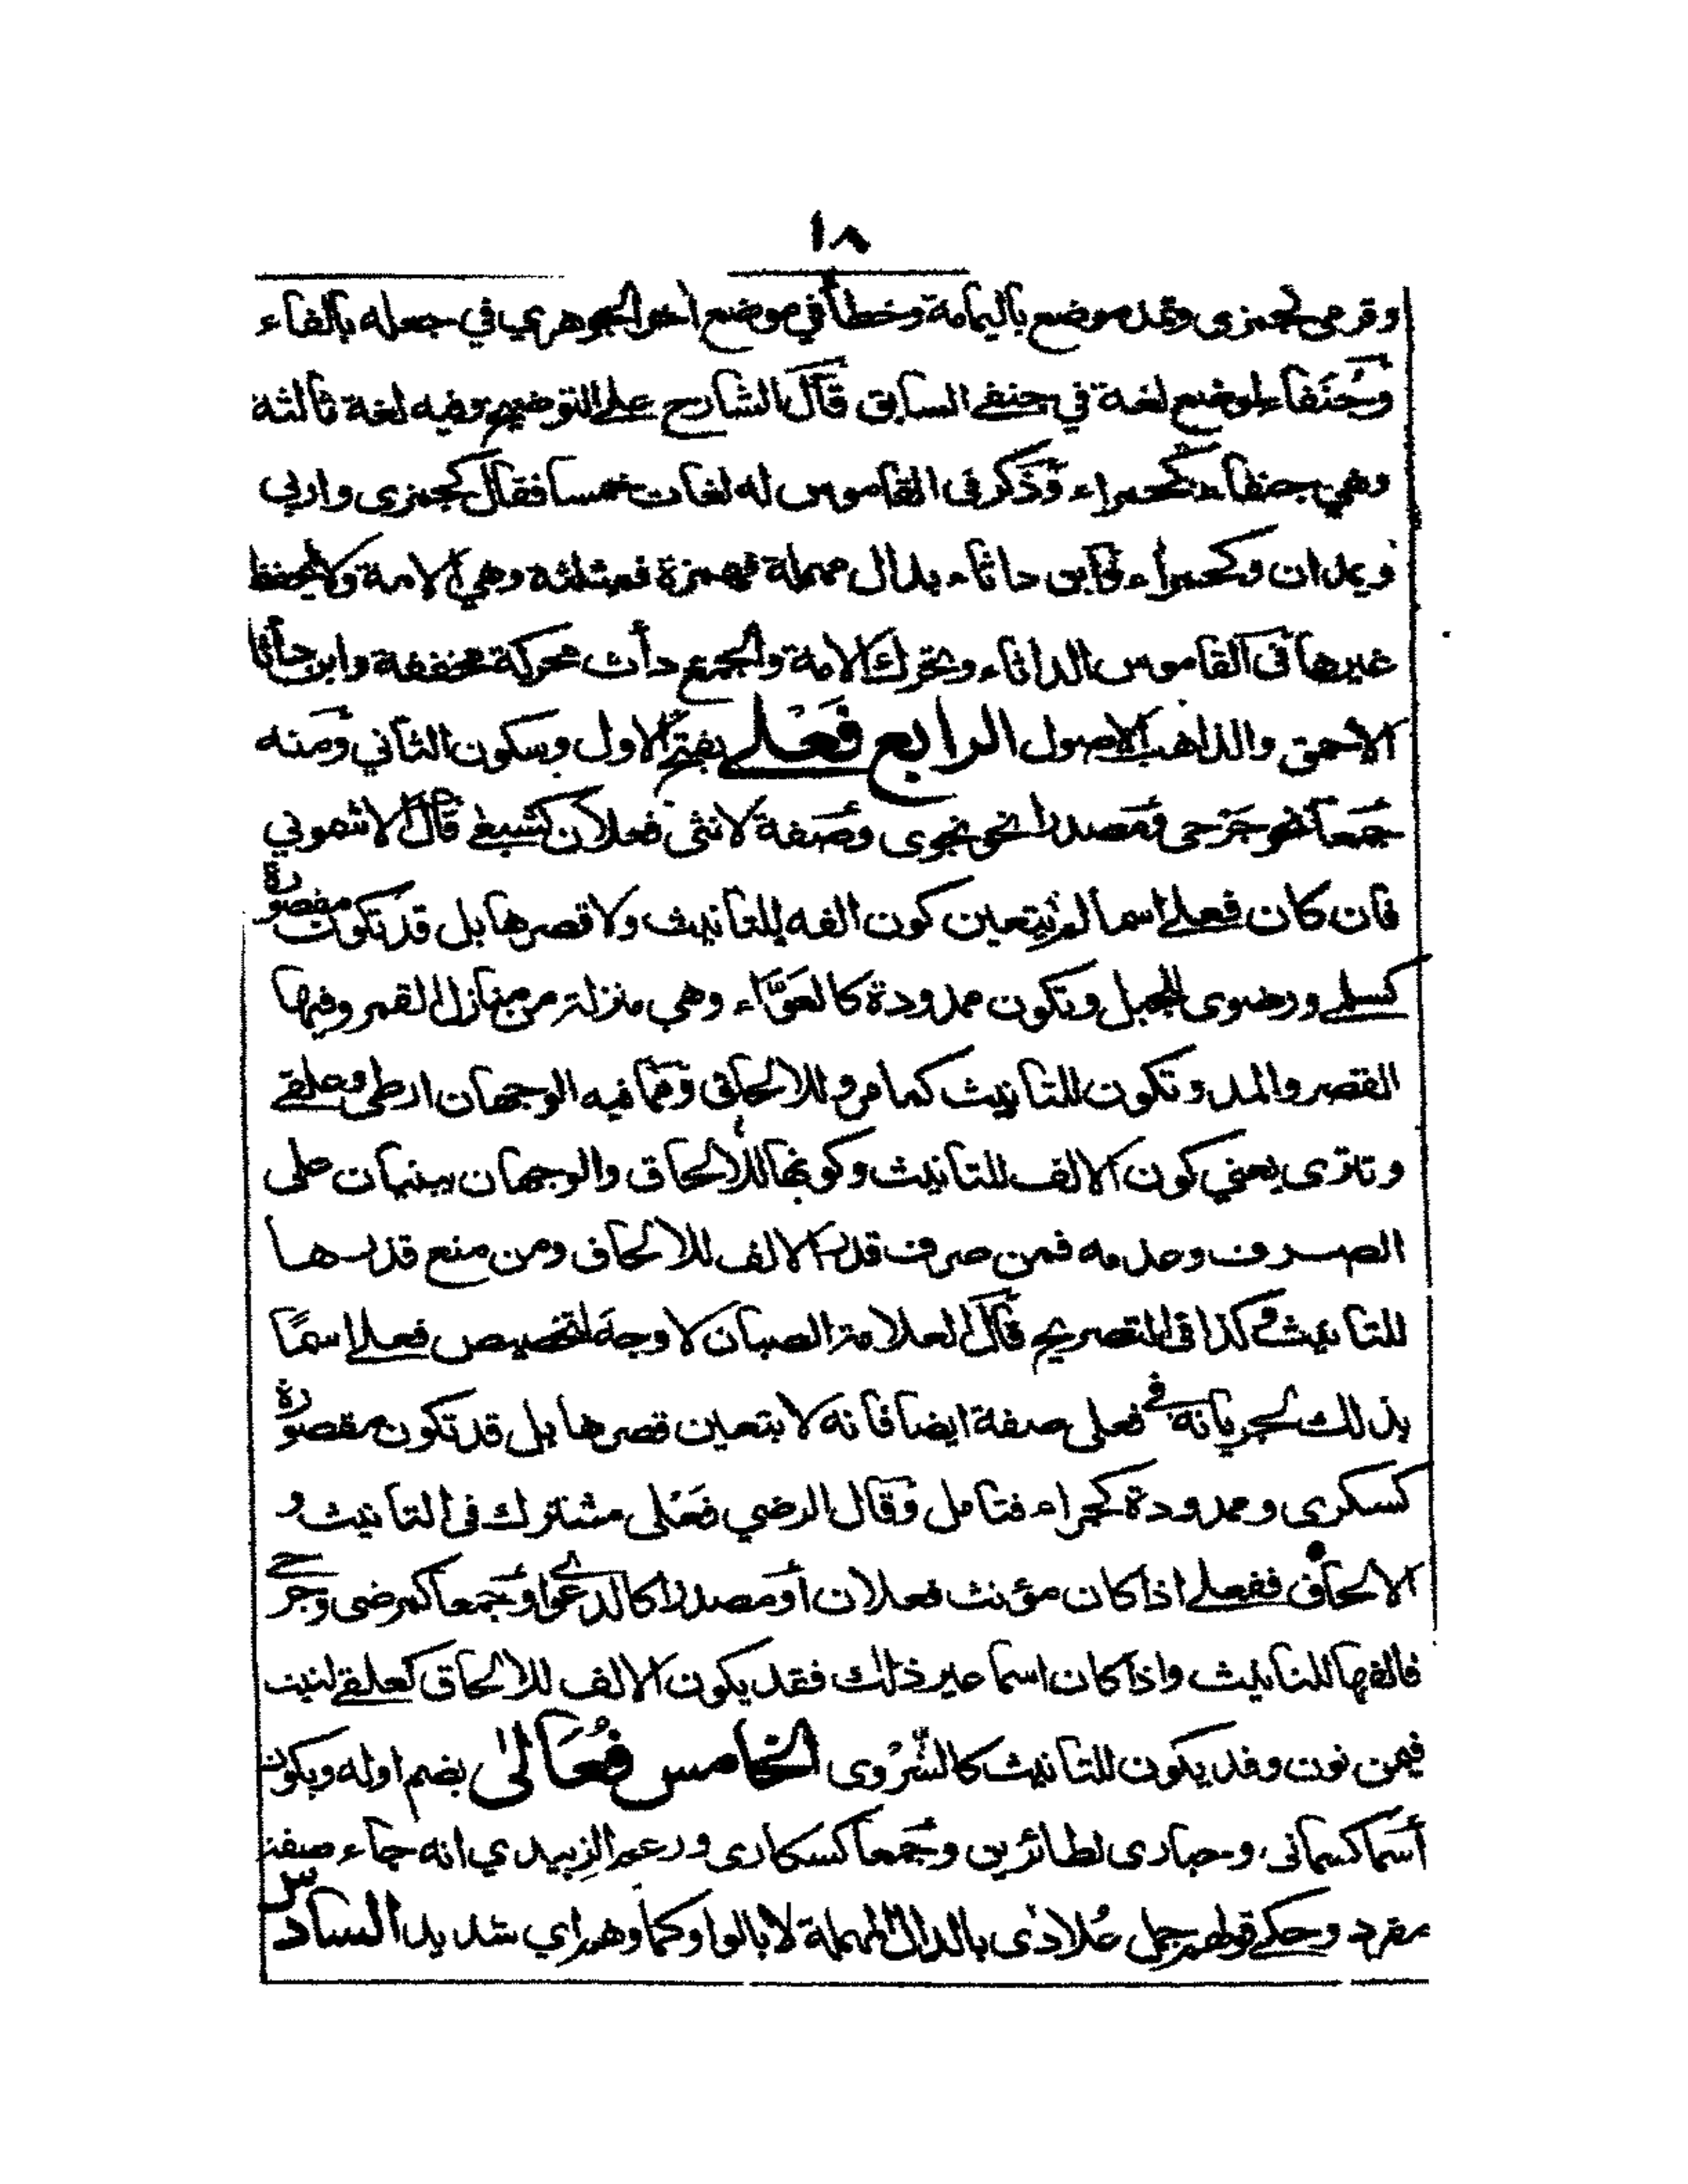 ١٨
وقرمى لجمزى وتمد موضع باليمامة وخطأ في موضع اخر الجوهري في جعله بالفاء
وجنفاء لموضع لغة في جنفى السابق قال الشارح على التوضيح وفيه لغة ثالثة
وهي جنفاء كحمراء وذكر في القاموس له لغات خمسا فقال كجمزى واربى
ويمدان وكحمراء وابن داثاء بدال مهملة فهمزة فمثلثة وهي الامة ولا يحفظ
غيرها في القاموس الداثاء وتحرك الامة والجمع دأث محركة مخففة وابن دأثا
الاحمق والذاهب الاصول الرابع فَعْلى بفتح الاول وسكون الثاني ومنه
جمعا نحو جَرْحى ومصدرا نحو نجوى وصفة لانثى فعلان كشبعى قال الاشموني
فان كان فعلى اسما لم يتعين كون الفه للتانيث ولا قصرها بل قد تكون مقصورة
كسلمى ورضوى لجبل وتكون ممدودة كالعوّاء وهي منزلة من منازل القمر وفيها
القصر والمد وتكون للتانيث كما مر وللالحاق ومما فيه الوجهان ارطى وعلقى
وتترى يعني كون الالف للتانيث وكونها للالحاق والوجهان مبنيان على
الصرف وعدمه فمن صرف قدر الالف للالحاق ومن منع قدرها
للتانيث وكذا في التصريح قال العلامة الصبان لا وجه لتخصيص فعلى اسمًا
بذلك لجريانه في فعلى صفة ايضا فانه لا يتعين قصرها بل قد تكون مقصورة
كسكرى وممدودة كحمراء فتامل وقال الرضي فَعْلى مشترك في التانيث و
الالحاق ففعلى اذا كان مؤنث فعلان أو مصدرا كالدعوى أو جمعا كمرضى وجرحى
فالفها للتانيث واذا كان اسما غير ذلك فقد يكون الالف للالحاق كعلقى لنبت
فيمن نون وقد يكون للتانيث كالشَّرْوى الخامس فُعَالى بضم اوله ويكون
أسما كسمانى وحبارى لطائرين وجمعا كسكارى وزعم الزبيدي انه جاء صفة
مفرد وحكى قولهم جمل عُلادى بالدال المهملة لا بالواو كما وهم اي شديد السادس